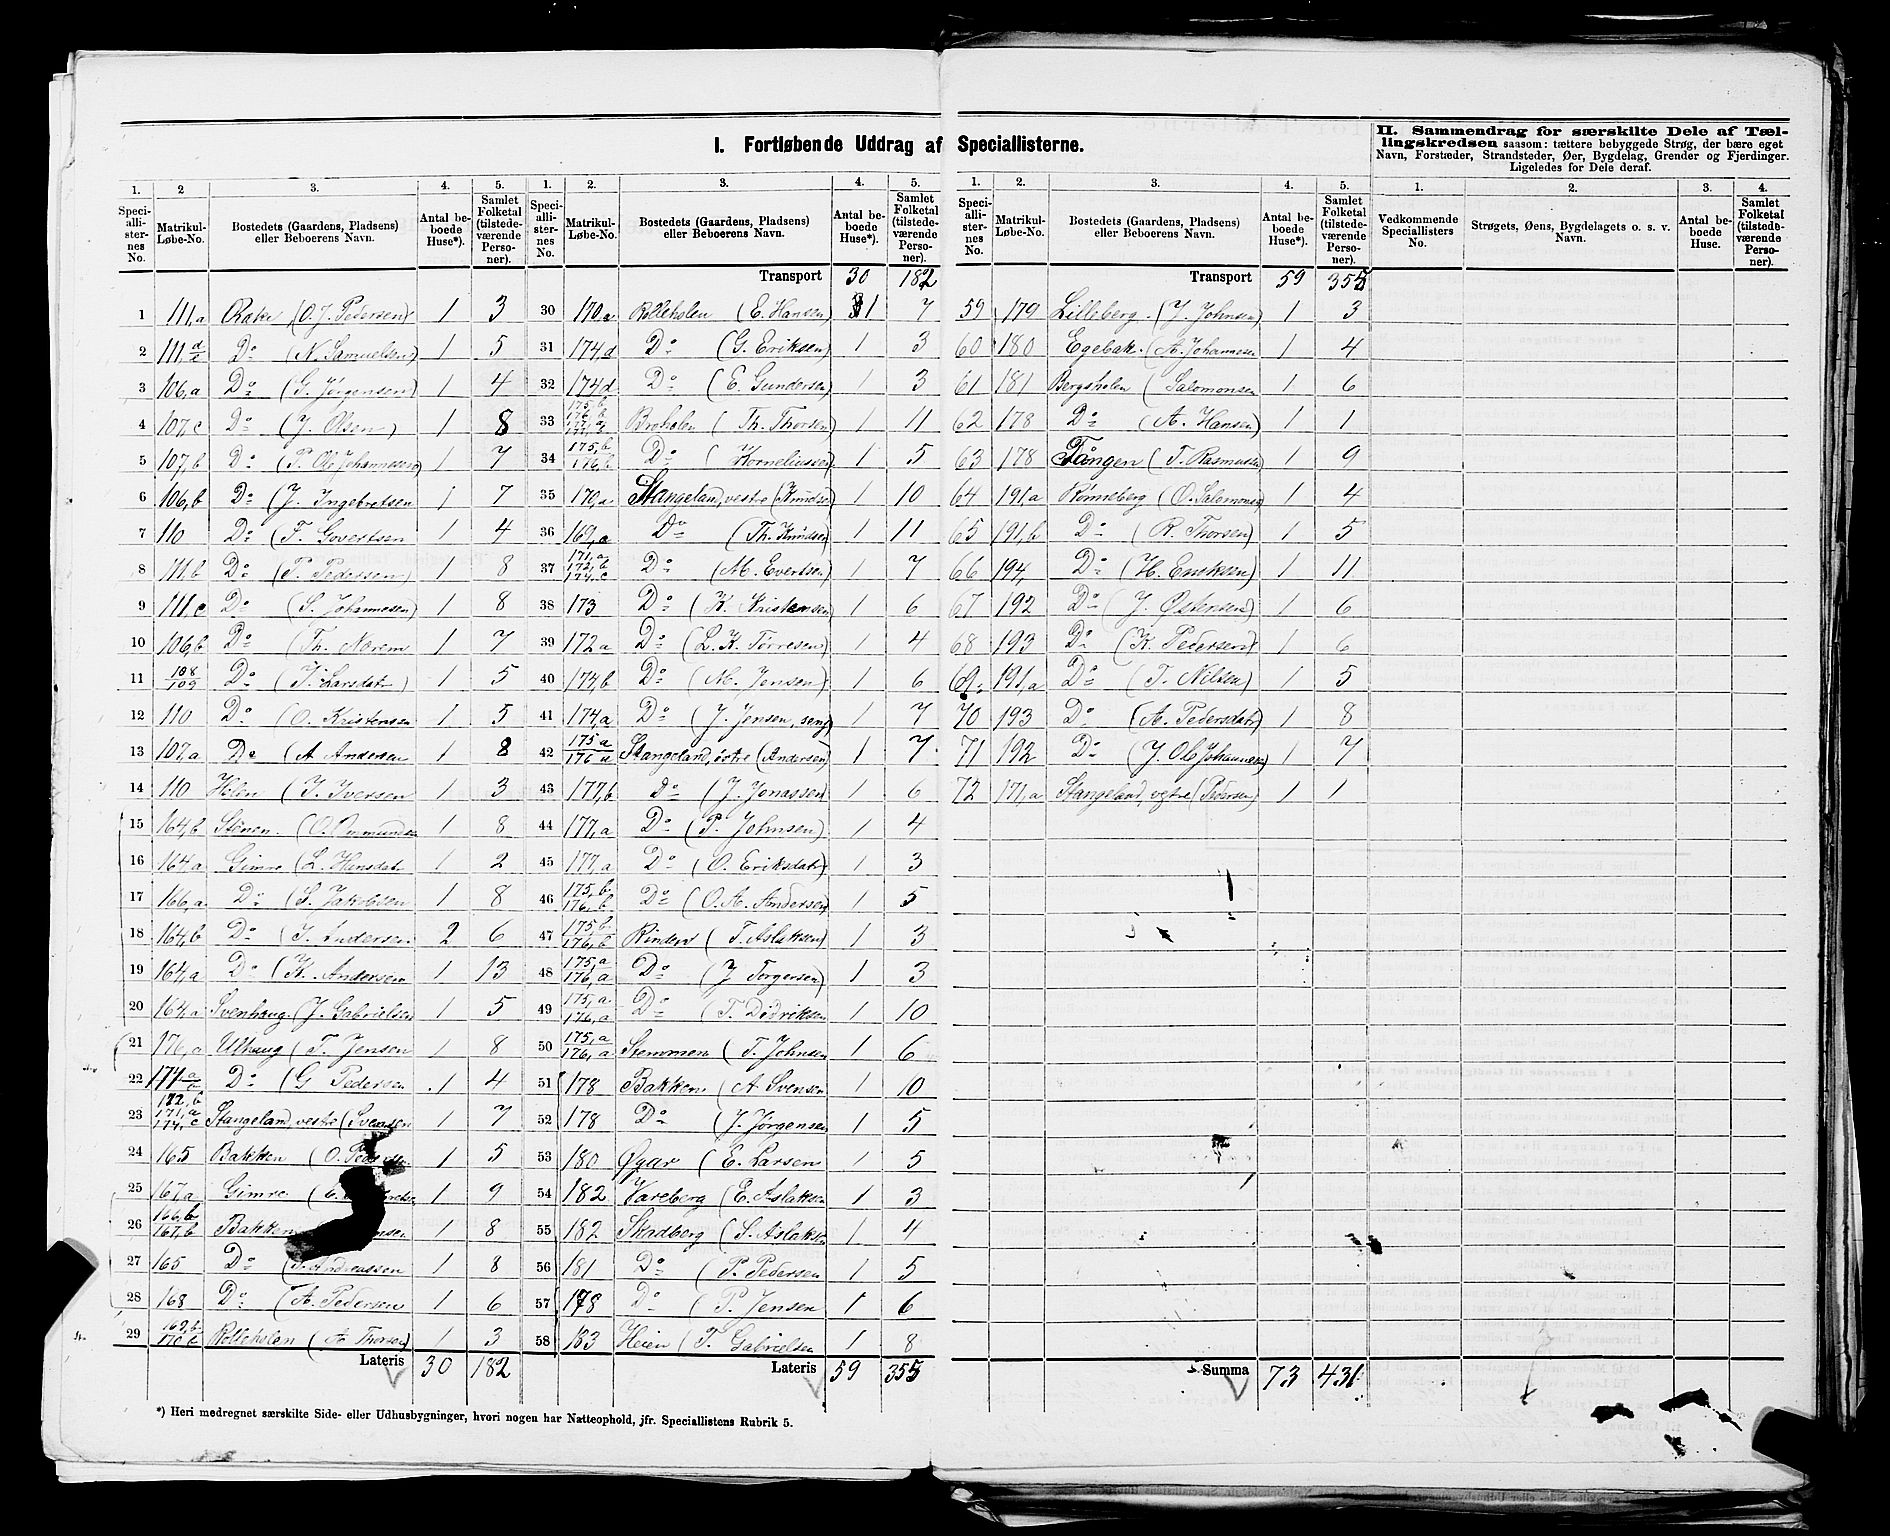 I. Fortløbende Uddrag af Speciallisterne.
II. Sammendrag for særskilte Dele af Tæl-
lingskredsen saasom: tættere bebyggede Strøg, der bære eget
Navn, Forstæder, Strandsteder, Øer, Bygdelag, Grender og Fjerdinger.
Ligeledes for Dele deraf.
1. 2 3. 4. 5. 1. 2. 3. 4. 5. 1. 2. 3. 4. 5. 1. 2. 3. 4.
Speciallisternes No. Matrikul-Løbe-No. Bostedets (Gaardens, Pladsens) eller Beboerens Navn. Antal beboede Huse*). Samlet Folketal (tilstedeværende Personer).
Speciallisternes No. Matrikul-Løbe-No. Bostedets (Gaardens, Pladsens) eller Beboerens Navn. Antal beboede Huse*). Samlet Folketal (tilstedeværende Personer).
Speciallisternes No. Matrikul-Løbe-No. Bostedets (Gaardens, Pladsens) eller Beboerens Navn. Antal beboede Huse*). Samlet Folketal (tilstedeværende Personer).
Vedkommende Speciallisters No. Strøgets, Øens, Bygdelagets o. s. v. Navn. Antal beboede Huse. Samlet Folketal (tilstedeværende Personer).
1 111,a Rake (O. J. Pedersen) 1 3
2 111 d/e Do (N. Samuelsen) 1 5
3 106,a Do (G. Jørgensen) 1 4
4 107,c Do (J. Olsen) 1 8
5 107,b Do (P. Ol. Johannesen) 1 7
6 106,b Do (J. Ingebretsen 1 7
7 110 Do (F. Govertsen 1 4
8 111,b Do (P. Pedersen) 1 8
9 111,c Do (S. Johannesen) 1 8
10 106,b Do (Th. Norem 1 7
11 108/109 Do (J. Larsdatr) 1 5
12 110 Do (O. Kristensen 1 5
13 107,a Do (A Andersen 1 8
14 110 Holen (I. Iversen 1 3
15 164,b Stenen (O. Omundsen 1 8
16 164,a Gimre (L. Hansdatr 1 2
17 166,a Do (S. Jakobsen 1 8
18 164,b Do (I. Andersen 2 6
19 164,a Do (K. Andersen 1 13
20 164,a Svenhaug (J. Gabrielsen 1 5
21 176,a Ulhaug (T. Jensen 1 8
22 174 a/c Do (G Pedersen 1 4
23 172,b 171,a 174,c Stangeland, vestre (Svensen 1 7
24 165 Bakken (O. Pedersen 1 5
25 167,a Gimre (E. 1 9
26 166,b 167,b Bakken 1 8
27 165 Do (T. Andreassen 1 8
28 168 Do (A. Pedersen 1 6
29 169,b 170,b Rolleholen (A Thorsen) 1 3
Lateris 30 182
Transport 30 182
30 170,a Rolleholen (E. Hansen) 1 7
31 174,d Do (G. Eriksen) 1 3
32 174,d Do (E. Gundersen) 1 3
33 175,b 176,b Broholen (Th. Thorsen) 1 11
34 175,b 176,b Do (Korneliussen) 1 5
35 170,a Stangeland, vestre (Knudsen 1 10
36 169,a Do (Th. Knudsen) 1 11
37 171,a 172,b 174,c Do (M. Evertsen) 1 7
38 173 Do (K. Kristensen) 1 6
39 172,a Do (L. K. Tørresen) 1 4
40 174,b Do (M. Jensen) 1 6
41 174,a Do (J. Jensen, seng) 1 7
42 175,a 176,a Stangeland, østre (Andersen) 1 7
43 177,b Do (J. Jonassen) 1 6
44 177,a Do (P. Johnsen) 1 4
45 177,a Do (O. Eriksdatr) 1 3
46 175,b 176,b Do (O. A. Andersen) 1 5
47 175,b 176,b Rinden (T. Aslaksen) 1 3
48 175,a 176,a Do (J Torgersen) 1 3
49 175,a 176,a Do (T. Didriksen 1 10
50 175,a 176,a Stemmen (T. Johnsen 1 6
51 178 Bakken (A Svensen 1 10
52 178 Do (J. Jørgensen 1 5
53 180 Øgar (E. Larsen 1 5
54 182 Vareberg (E. Aslaksen 1 3
55 182 Skadberg (S. Aslaksen 1 4
56 181 Do (P. Pedersen 1 5
57 178 Do (P. Jensen 1 6
58 183 Heien (T. Gabrielsen 1 8
Lateris 59 355
Transport 59 355
59 179 Lilleberg (J. Johnsen) 1 3
60 180 Egebak (A. Johannesen 1 4
61 181 Bergsholen (Salomonsen 1 6
62 178 Do (A. Hansen) 1 1
63 178 Tången (T. Rasmussen 1 9
64 191,a Rønneberg (O. Salomonsen 1 4
65 191,b Do (R. Thorsen) 1 5
66 194 Do (H. Eriksen) 1 11
67 192 Do (J. Østensen) 1 6
68 193 Do (K. Pedersen) 1 6
69 191,a Do (T. Nilsen) 1 5
70 193 Do (A. Pedersdatr) 1 8
71 192 Do (J. Ol. Johannesen) 1 7
72 171,a Stangeland, vestre (Pedersen) 1 1
Summa 73 431
*) Heri medregnet særskilte Side- eller Udhusbygninger, hvori nogen har Natteophold, jfr. Speciallistens Rubrik 5.